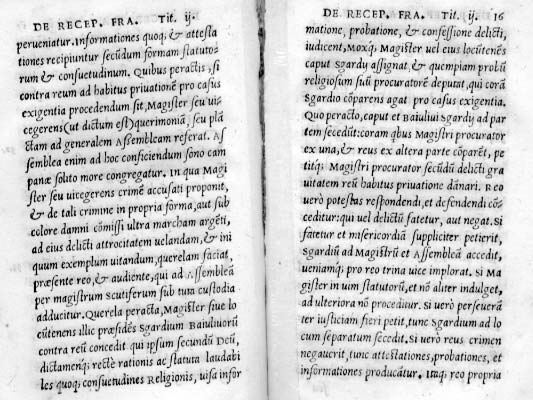 DE RECEP. FRA. Tit. ij.
perueniatur. Informationes quoq; & attesta
tiones recipiuntur secūdum formam statuto-
rum & consuetudinum. Quibus peractis, si
contra reum ad habitus priuationē pro casus
exigentia procedendum sit, Magister seu ui-
cegerens (ut dictum est) querimoniā, seu plā
ctam ad generalem Assembleam referat. As
semblea enim ad hoc conficiendum sono cam
panæ solito more congregatur. In qua Magi
ster seu uicegerens crimē accusati proponit,
& de tali crimine in propria forma, aut sub
colore damni cōmissi ultra marcham argēti,
ad eius delicti attrocitatem uelandam, & ini
quum exemplum uitandum, querelam faciat,
præsente reo, & audiente, qui ad Assembleā
per magistrum Scutiferum sub tuta custodia
adducitur. Querela peracta, Magister siue lo
cūtenens illic præsidēs Sgardium Baiuliuorū
contra reū concedit qui ipsum secundū Deū,
dictamenq; rectè rationis ac statuta laudabi
les quoq; consuetudines Religionis, uisa infor
DE RECEP. FRA. Tit. ij. 16
matione, probatione, & confessione delicti,
iudicent, Moxq; Magister uel eius locūtenēs
caput Sgardy assignat, & quempiam probū
religiosum suū procuratorē deputat, qui corā
Sgardio cōparens agat pro casus exigentia.
Quo peracto, caput et Baiuliui Sgardy ad par
tem secedūt: coram qbus Magistri procurator
ex una, & reus ex altera parte cōparēt, pe
titq; Magistri procurator secūdū delicti gra
uitatem reū habitus priuatione dānari. Reo
uerò potestas respondendi, et defendendi cō-
ceditur: qui uel delictū fatetur, aut negat. Si
fatetur et misericordiā suppliciter petierit,
Sgardiū ad Magistrū et Assembleā accedit,
ueniamq; pro reo trina uice implorat. Si Ma
gister in uim statutorū, et nō aliter indulget,
ad ulteriora nō proceditur. Si uerò perseuerā
ter iusticiam fieri petit, tunc Sgardium ad lo
cum separatum secedit. Si uerò reus crimen
negauerit, tunc attestationes, probationes, et
informationes producātur. Itaq; reo propria